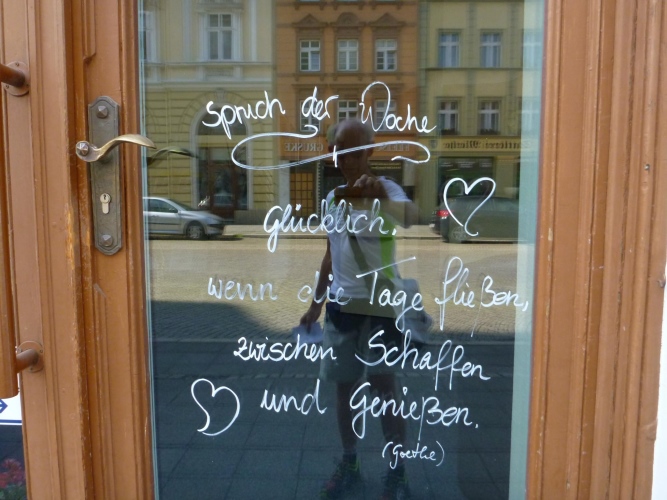 Spruch der Woche
Glücklich,
wenn die Tage fließen,
zwischen Schaffen
und Genießen.
(Goethe)